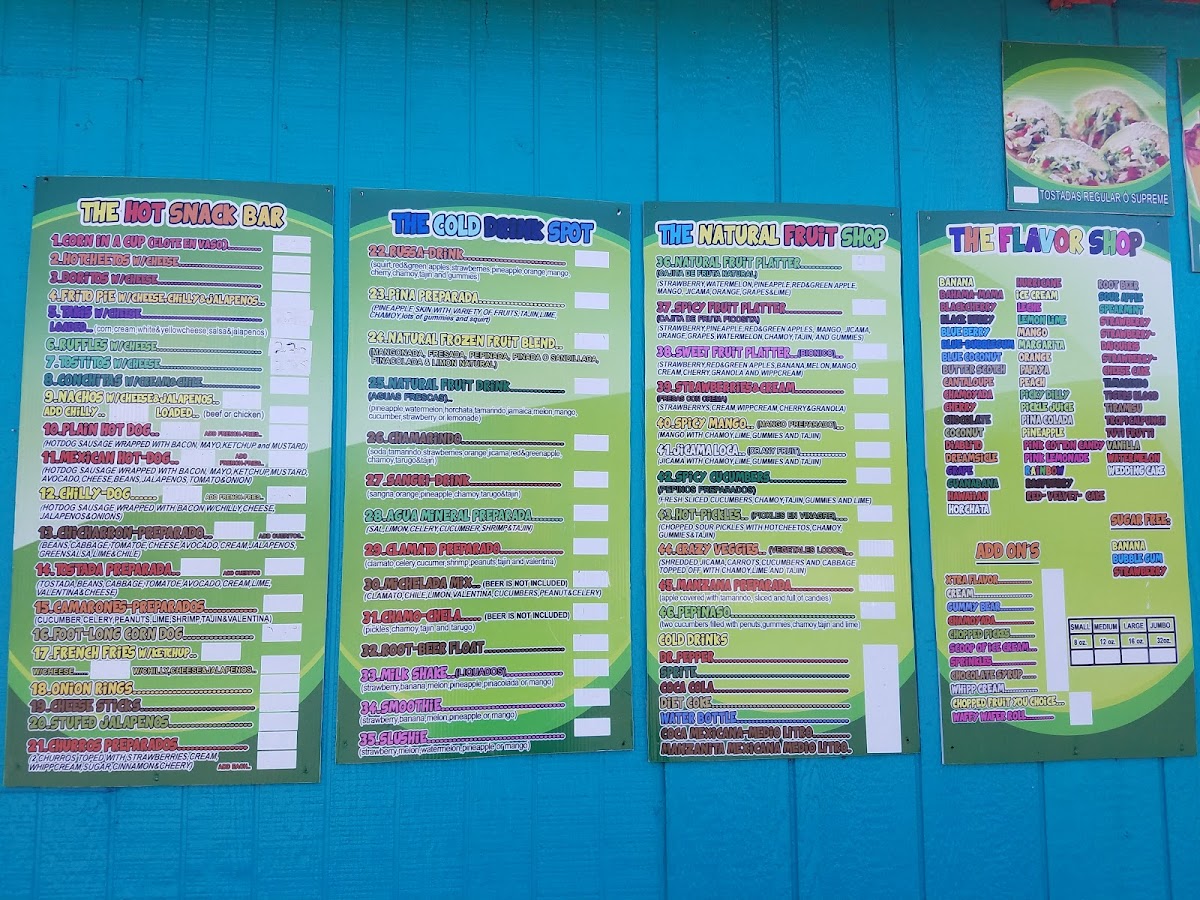 THE HOT SNACK BAR
1.CORN IN A CUP (ELOTE EN VASO)
2.HOTCHEETOS W/CHEESE
3.DORITOS W/CHEESE
4.FRITO PIE W/CHEESE,CHILLY&JALAPENOS..
5.TAKIS W/CHEESE
LOADED... (corn,cream,white&yellowcheese,salsa&jalapenos)
6.RUFFLES W/CHEESE
7.TOSTITOS W/CHEESE
8.CONCHITAS W/CREAM&CHILE
9.NACHOS W/CHEESE&JALAPENOS..
ADD CHILLY.. LOADED.. (beef or chicken)
10.PLAIN HOT DOG...
(HOTDOG SAUSAGE WRAPPED WITH BACON, MAYO,KETCHUP and MUSTARD)
11.MEXICAN HOT-DOG...
(HOTDOG SAUSAGE WRAPPED WITH BACON, MAYO,KETCHUP,MUSTARD,
AVOCADO,CHEESE,BEANS,JALAPENOS,TOMATO&ONION)
12.CHILLY-DOG......
(HOTDOG SAUSAGE,WRAPPED WITH BACON W/CHILLY,CHEESE,
JALAPENOS&ONIONS)
13.CHICHARRON-PREPARADO... ADD CUERITOS..
(BEANS,CABBAGE,TOMATOE,CHEESE,AVOCADO,CREAM,JALAPENOS,
GREENSALSA,LIME&CHILE)
14.TOSTADA PREPARADA... ADD CUERITOS
(TOSTADA,BEANS,CABBAGE,TOMATOE,AVOCADO,CREAM,LIME,
VALENTINA&CHEESE)
15.CAMARONES-PREPARADOS
(CUCUMBER,CELERY,PEANUTS,LIME,SHRIMP,TAJIN&VALENTINA)
16.FOOT-LONG CORN DOG
17.FRENCH FRIES W/KETCHUP...
W/CHEESE...... W/CHILLY,CHEESE&JALAPENOS..
18.ONION RINGS
19.CHEESE STICKS
20.STUFED JALAPENOS
21.CHURROS PREPARADOS
(2 CHURROS TOPED WITH STRAWBERRIES,CREAM,
WHIPPCREAM,SUGAR,CINNAMON&CHEERY) ADD EACH..
THE COLD DRINK SPOT
22.RUSSA-DRINK
(squirt,red&green apples,strawberries,pineapple,orange,mango,
cherry,chamoy,tajin and gummies)
23.PINA PREPARADA
(PINEAPPLE SKIN WITH, VARIETY OF FRUITS,TAJIN,LIME,
CHAMOY,lots of gummies and squirt)
24.NATURAL FROZEN FRUIT BLEND..
(MANGONADA, FRESADA, PEPINADA, PINADA O SANDILLADA,
PINACOLADA & LIMON NATURAL)
25.NATURAL FRUIT DRINK
(AGUAS FRESCAS)..
(pineapple,watermelon,horchata,tamarindo,jamaica,melon,mango,
cucumber,strawberry or lemonade)
26.CHAMARINDO
(soda,tamarindo,strawberries,orange,jicama,red&greenapple,
chamoy,tarugo&tajin)
27.SANGRI-DRINK
(sangria,orange,pineapple,chamoy,tarugo&tajin)
28.AGUA MINERAL PREPARADA
(SAL,LIMON,CELERY,CUCUMBER,SHRIMP&TAJIN)
29.CLAMATO PREPARADO
(clamato,celery,cucumber,shrimp,peanuts,tajin and valentina)
30.MICHELADA MIX... (BEER IS NOT INCLUDED)
(CLAMATO,CHILE,LIMON,VALENTINA,CUCUMBERS,PEANUT&CELERY)
31.CHAMO-CHELA..... (BEER IS NOT INCLUDED)
(pickles,chamoy,tajin and tarugo)
32.ROOT-BEER FLOAT
33.MILK SHAKE..(LIQUADOS)
(strawberry,banana,melon,pineapple,pinacolada or mango)
34.SMOOTHIE
(strawberry,banana,melon,pineapple or mango)
35.SLUSHIE
(strawberry,melon,watermelon,pineapple or mango)
THE NATURAL FRUIT SHOP
36.NATURAL FRUIT PLATTER
(CAJITA DE FRUTA NATURAL)
(STRAWBERRY,WATERMELON,PINEAPPLE,RED&GREEN APPLE,
MANGO,JICAMA,ORANGE,GRAPES&LIME)
37.SPICY FRUIT PLATTER
(CAJITA DE FRUTA PICOSITA)
(STRAWBERRY,PINEAPPLE,RED&GREEN APPLES, MANGO, JICAMA,
ORANGE,GRAPES,WATERMELON,CHAMOY,TAJIN, AND GUMMIES)
38.SWEET FRUIT PLATTER..(BIONICO)...
(STRAWBERRY,RED&GREEN APPLES,BANANA,MELON,MANGO,
CREAM,CHERRY,GRANOLA and WIPPCREAM)
39.STRAWBERRIES&CREAM
(FRESAS CON CREMA)
(STRAWBERRYS,CREAM,WIPPCREAM,CHERRY&GRANOLA)
40.SPICY MANGO.. (MANGO PREPARADO)..
(MANGO WITH CHAMOY,LIME,GUMMIES AND TAJIN)
41.JICAMA LOCA.. (CRAZY FRUIT)
(JICAMA WITH CHAMOY,LIME,GUMMIES AND TAJIN)
42.SPICY CUCUMBERS
(PEPINOS PREPARADOS)
(FRESH SLICED CUCUMBERS,CHAMOY,TAJIN,GUMMIES AND LIME)
43.HOT-PICKLES.. (PICKLES EN VINAGRE)
(CHOPPED SOUR PICKLES WITH HOTCHEETOS,CHAMOY
GUMMIES&TAJIN)
44.CRAZY VEGGIES.. (VEGETALES LOCOS)
(SHREDDED JICAMA,CARROTS,CUCUMBERS AND CABBAGE
TOPPED OFF WITH CHAMOY,LIME AND TAJIN)
45.MANZANA PREPARADA
(apple covered with tamarindo, sliced and full of candies)
46.PEPINASO
(two cucumbers filled with penuts,gummies,chamoy,tajin and lime)
COLD DRINKS
DR.PEPPER
SPRITE
COCA COLA
DIET COKE
WATER BOTTLE
COCA MEXICANA-MEDIO LITRO.
MANZANITA MEXICANA MEDIO LITRO.
TOSTADAS REGULAR O SUPREME
THE FLAVOR SHOP
BANANA
BAHAMA-MAMA
BLACKCHERRY
BLACK BERRY
BLUE BERRY
BLUE-BUBBLEGUM
BLUE COCONUT
BUTTER SCOTCH
CANTALOUPE
CHAMOYADA
CHERRY
CHOCOLATE
COCONUT
DIABLITO
DREAMSICLE
GRAPE
GUANABANA
HAWAIIAN
HORCHATA
HURRICANE
ICE CREAM
LECHE
LEMON LIME
MANGO
MARGARITA
ORANGE
PAPAYA
PEACH
PICKY DILLY
PICKLE JUICE
PINA COLADA
PINEAPPLE
PINK COTTON CANDY
PINK LEMONADE
RAINBOW
RASPBERRY
RED-VELVET- CAKE
ROOT BEER
SOUR APPLE
SPEARMINT
STRAWBERRY
STRAWBERRY-
DAIQUIRIS
STRAWBERRY-
CHEESE CAKE
TAMARINDO
TIGERS BLOOD
TIRAMISU
TROPICALPUNCH
TUTI FRUTTI
VANILLA
WATERMELON
WEDDING CAKE
SUGAR FREE:
BANANA
BUBBLE GUM
STRAWBERRY
ADD ON'S
XTRA FLAVOR
CREAM
GUMMY BEAR
CHAMOYADA
CHOPPED PICKLE
SCOOP OF ICE CREAM..
SPRINKLES
CHOCOLATE SYRUP
WHIPP CREAM
CHOPPED FRUIT YOU CHOICE...
WAFFY WAFER ROLL
SMALL MEDIUM LARGE JUMBO
8 oz. 12 oz. 16 oz. 32oz.